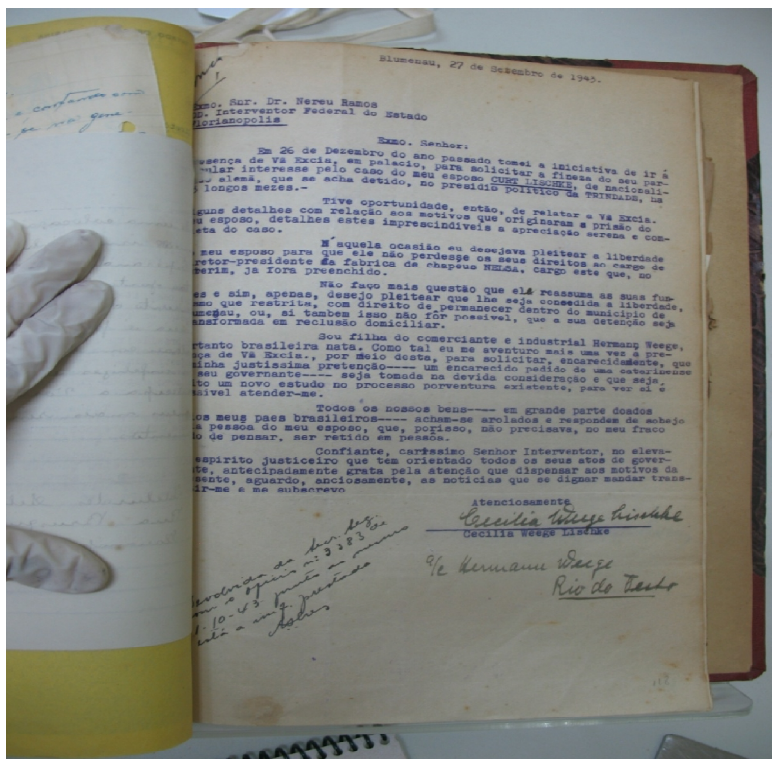 Blumenau, 27 de Setembro de 1943.
Exmo. Snr. Dr. Nereu Ramos
DD. Interventor Federal do Estado
Florianopolis
Exmo. Senhor:
Em 26 de Dezembro do ano passado tomei a iniciativa de ir á
presença de Vª Excia, em palacio, para solicitar a fineza do seu par-
ular interesse pelo caso do meu esposo CURT LISCHKE, de nacionali-
alemã, que se acha detido, no presidio politico da TRINDADE, ha
longos mezes.-
Tive oportunidade, então, de relatar a Vª Excia.
guns detalhes com relação aos motivos que originaram a prisão do
u esposo, detalhes estes imprescindiveis a apreciação serena e com-
eta do caso.
N'aquela ocasião eu desejava pleitear a liberdade
meu esposo para que ele não perdesse os seus direitos ao cargo de
retor-presidente da fabrica de chapeus NELSA, cargo este que, no
terim, ja fora preenchido.
Não faço mais questão que ele reassuma as suas fun-
es e sim, apenas, desejo pleitear que lhe seja consedida a liberdade,
smo que restrita, com direito de permanecer dentro do municipio de
umenau, ou, si tambem isso não fôr possivel, que a sua detenção seja
ansformada em reclusão domiciliar.
Sou filha do comerciante e industrial Hermann Weege,
rtanto brasileira nata. Como tal eu me aventuro mais uma vez a pre-
nça de Vª Excia., por meio desta, para solicitar, encarecidamente, que
inha justissima pretenção---- um encarecido pedido de uma catarinense
seu governante---- seja tomada na devida consideração e que seja
ito um novo estudo no processo porventura existente, para ver si é
ssivel atender-me.
Todos os nossos bens---- em grande parte doados
los meus paes brasileiros---- acham-se arolados e respondem de sobejo
a pessoa do meu esposo, que, porisso, não precisava, no meu fraco
do de pensar, ser retido em pessôa.
Confiante, carissimo Senhor Interventor, no eleva-
espirito justiceiro que tem orientado todos os seus atos de gover-
te, antecipadamente grata pela atenção que dispensar aos motivos da
sente, aguardo, anciosamente, as noticias que se dignar mandar trans-
ir-me e me subscrevo
Atenciosamente
Cecilia Weege Lischke
Cecilia Weege Lischke
a/c Hermann Weege
Rio do Testo
Devolvida da
com o oficio nº 9383 de
1-10-43